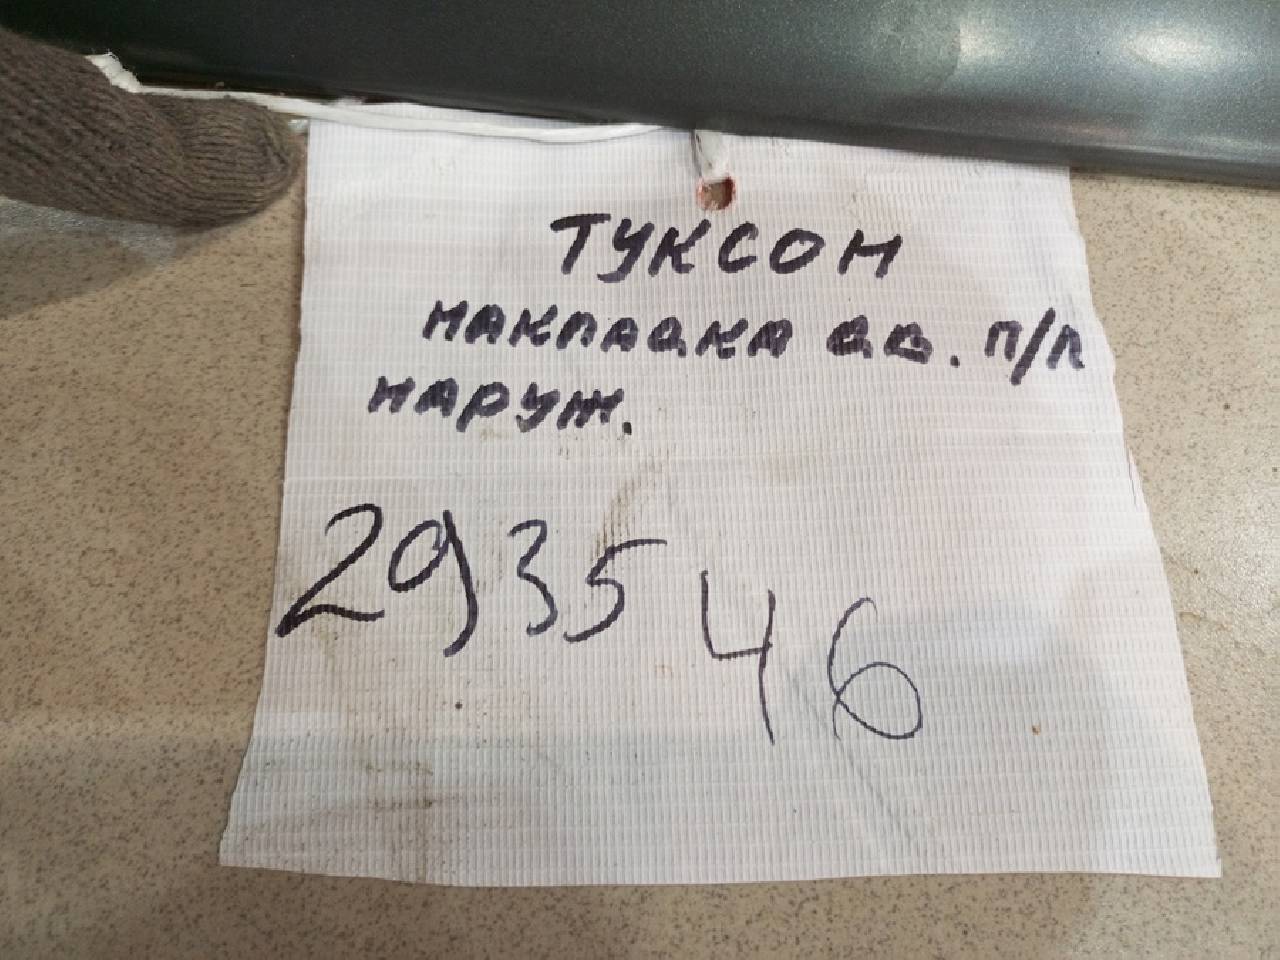 ТУКСОН
НАКЛАДКА ДВ. П/Л
НАРУЖ.
293546